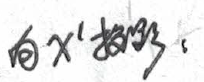 向x'投影：